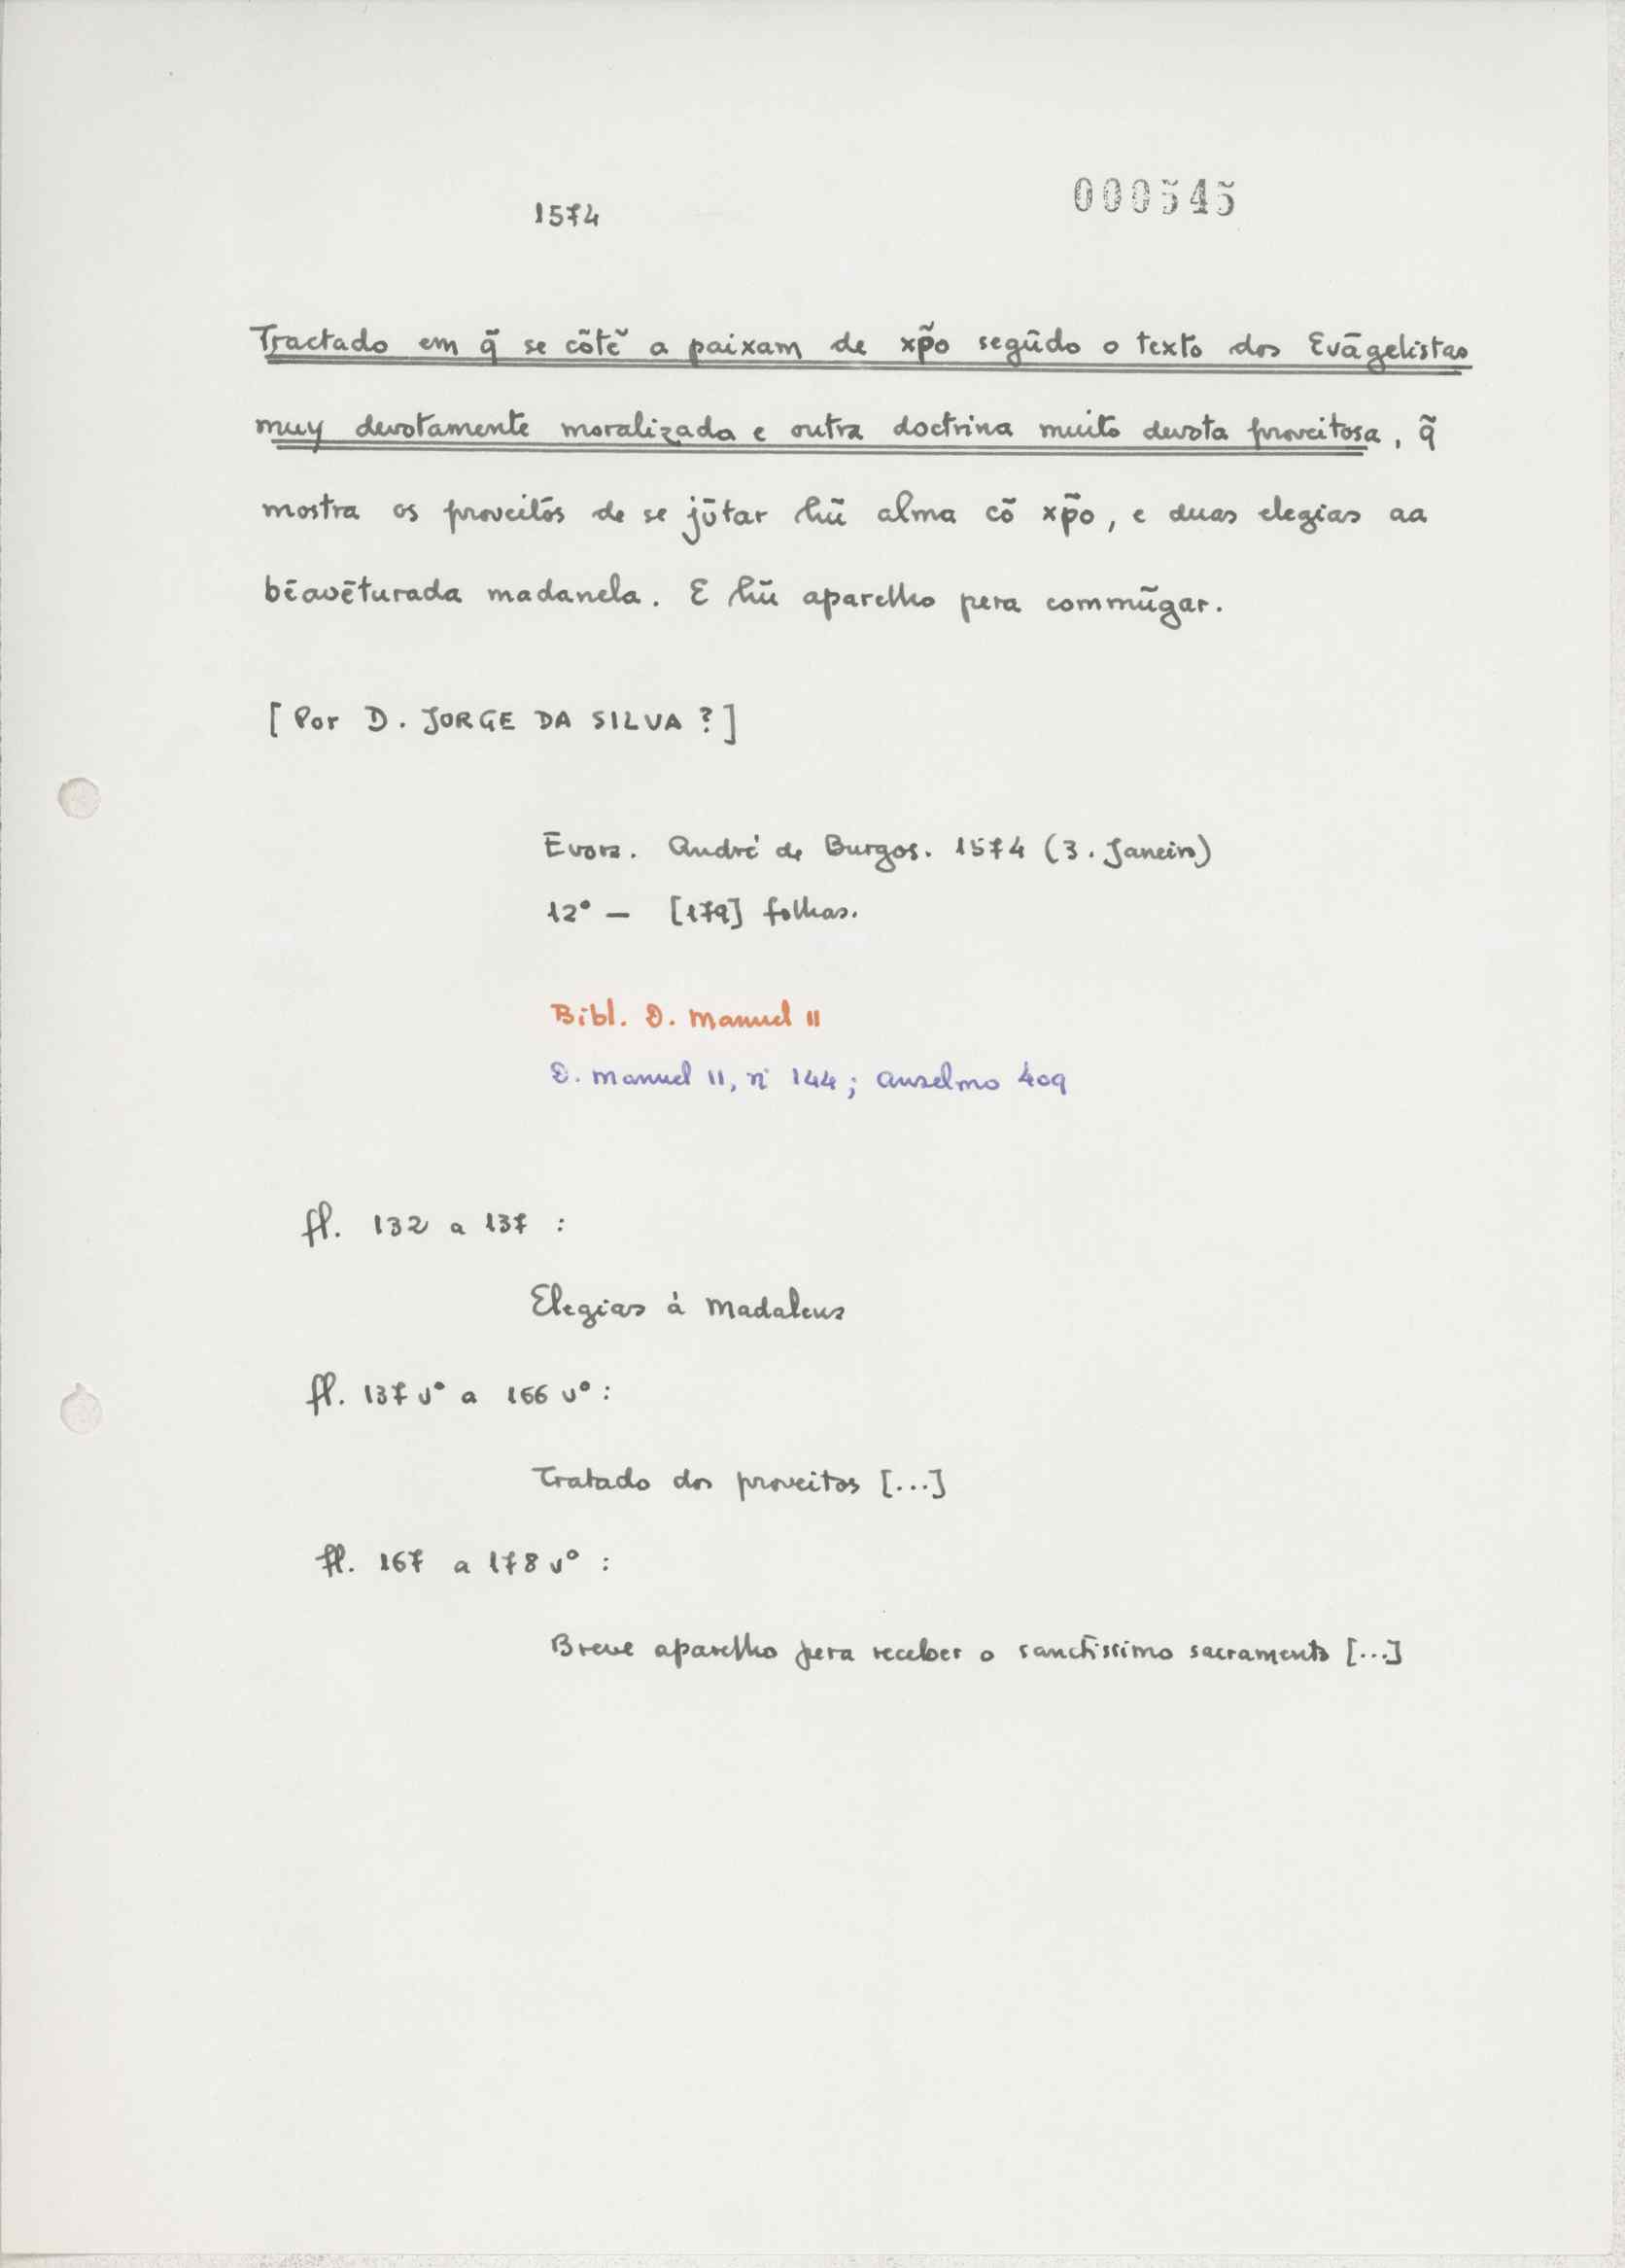 000545
1574
Tractado em q̃ se cõtẽ a paixam de xp̃o segũdo o texto dos Evãgelistas
muy devotamente moralizada e outra doctrina muito devota proveitosa, q̃
mostra os proveitos de se jũtar hũ alma cõ xp̃o, e duas elegias aa
bẽavẽturada madanela. E hũ aparelho pera commũgar.
[Por D. JORGE DA SILVA?]
Évora. André de Burgos. 1574 (3. Janeiro)
12º — [179] folhas.
Bibl. D. Manuel II
D. Manuel II, nº 144; Anselmo 409
ff. 132 a 137 :
Elegias à Madalena
ff. 137 vº a 166 vº :
Tratado dos proveitos [...]
ff. 167 a 178 vº :
Breve aparelho pera receber o sanctissimo sacramento [...]